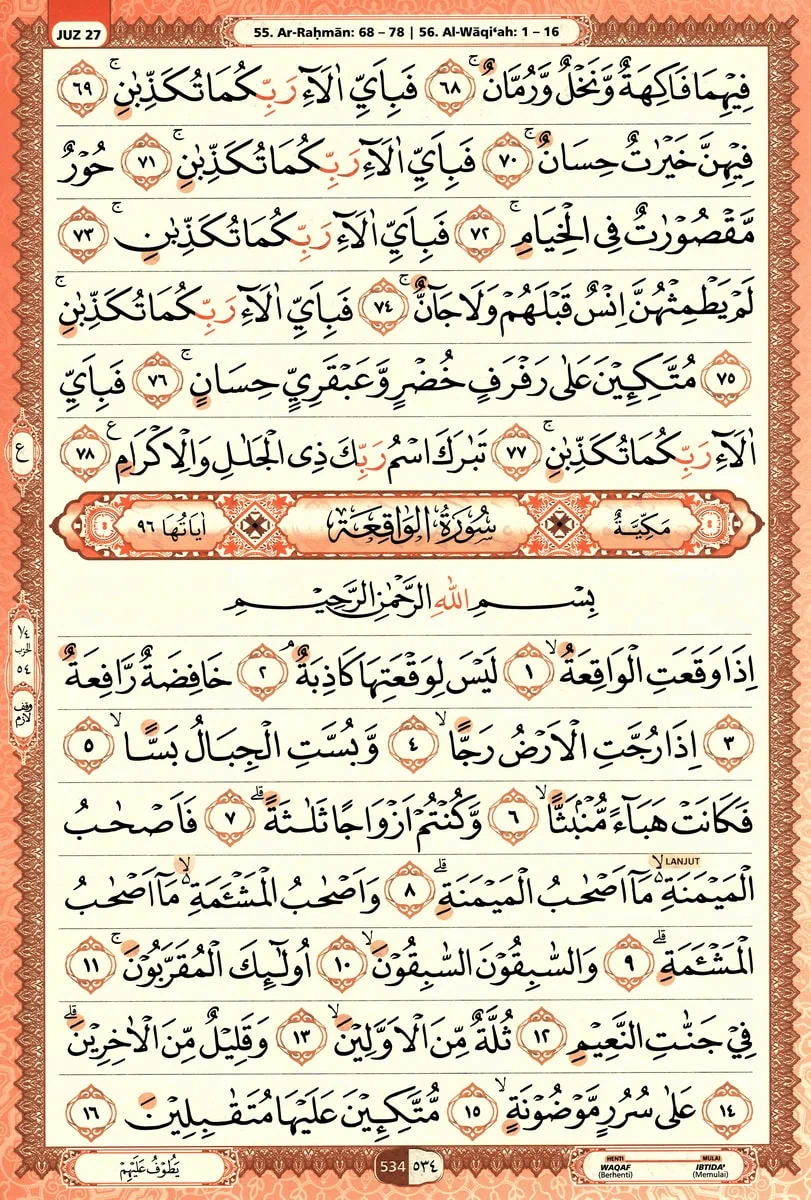 JUZ 27
55. Ar-Raḥmān: 68 – 78 | 56. Al-Wāqi‘ah: 1 – 16
فِيْهِمَا فَاكِهَةٌ وَّنَخْلٌ وَّرُمَّانٌۚ ٦٨ فَبِاَيِّ اٰلَاۤءِ رَبِّكُمَا تُكَذِّبٰنِۚ ٦٩
فِيْهِنَّ خَيْرٰتٌ حِسَانٌۚ ٧٠ فَبِاَيِّ اٰلَاۤءِ رَبِّكُمَا تُكَذِّبٰنِۚ ٧١ حُوْرٌ
مَّقْصُوْرٰتٌ فِى الْخِيَامِۚ ٧٢ فَبِاَيِّ اٰلَاۤءِ رَبِّكُمَا تُكَذِّبٰنِۚ ٧٣
لَمْ يَطْمِثْهُنَّ اِنْسٌ قَبْلَهُمْ وَلَا جَاۤنٌّۚ ٧٤ فَبِاَيِّ اٰلَاۤءِ رَبِّكُمَا تُكَذِّبٰنِۚ
٧٥ مُتَّكِـِٕيْنَ عَلٰى رَفْرَفٍ خُضْرٍ وَّعَبْقَرِيٍّ حِسَانٍۚ ٧٦ فَبِاَيِّ
اٰلَاۤءِ رَبِّكُمَا تُكَذِّبٰنِۚ ٧٧ تَبٰرَكَ اسْمُ رَبِّكَ ذِى الْجَلٰلِ وَالْاِكْرَامِ ع ٧٨
ع
مَكِّيَّةٌ
سُوْرَةُ الْوَاقِعَةِ
اٰيَاتُهَا ٩٦
بِسْمِ اللّٰهِ الرَّحْمٰنِ الرَّحِيْمِ
اِذَا وَقَعَتِ الْوَاقِعَةُۙ ١ لَيْسَ لِوَقْعَتِهَا كَاذِبَةٌۘ ٢ خَافِضَةٌ رَّافِعَةٌ
٣ اِذَا رُجَّتِ الْاَرْضُ رَجًّاۙ ٤ وَّبُسَّتِ الْجِبَالُ بَسًّاۙ ٥
فَكَانَتْ هَبَاۤءً مُّنْۢبَثًّاۙ ٦ وَّكُنْتُمْ اَزْوَاجًا ثَلٰثَةًۗ ٧ فَاَصْحٰبُ
LANJUT
الْمَيْمَنَةِ ەۙ مَآ اَصْحٰبُ الْمَيْمَنَةِۗ ٨ وَاَصْحٰبُ الْمَشْـَٔمَةِ ەۙ مَآ اَصْحٰبُ
الْمَشْـَٔمَةِۗ ٩ وَالسّٰبِقُوْنَ السّٰبِقُوْنَۙ ١٠ اُولٰۤىِٕكَ الْمُقَرَّبُوْنَۚ ١١
فِيْ جَنّٰتِ النَّعِيْمِ ١٢ ثُلَّةٌ مِّنَ الْاَوَّلِيْنَۙ ١٣ وَقَلِيْلٌ مِّنَ الْاٰخِرِيْنَۗ
١٤ عَلٰى سُرُرٍ مَّوْضُوْنَةٍۙ ١٥ مُّتَّكِـِٕيْنَ عَلَيْهَا مُتَقٰبِلِيْنَ ١٦
١/٤
الحزب
٥٤
وقف
لازم
يَطُوْفُ عَلَيْهِمْ
534 ٥٣٤
HENTI
WAQAF
(Berhenti)
MULAI
IBTIDA'
(Memulai)